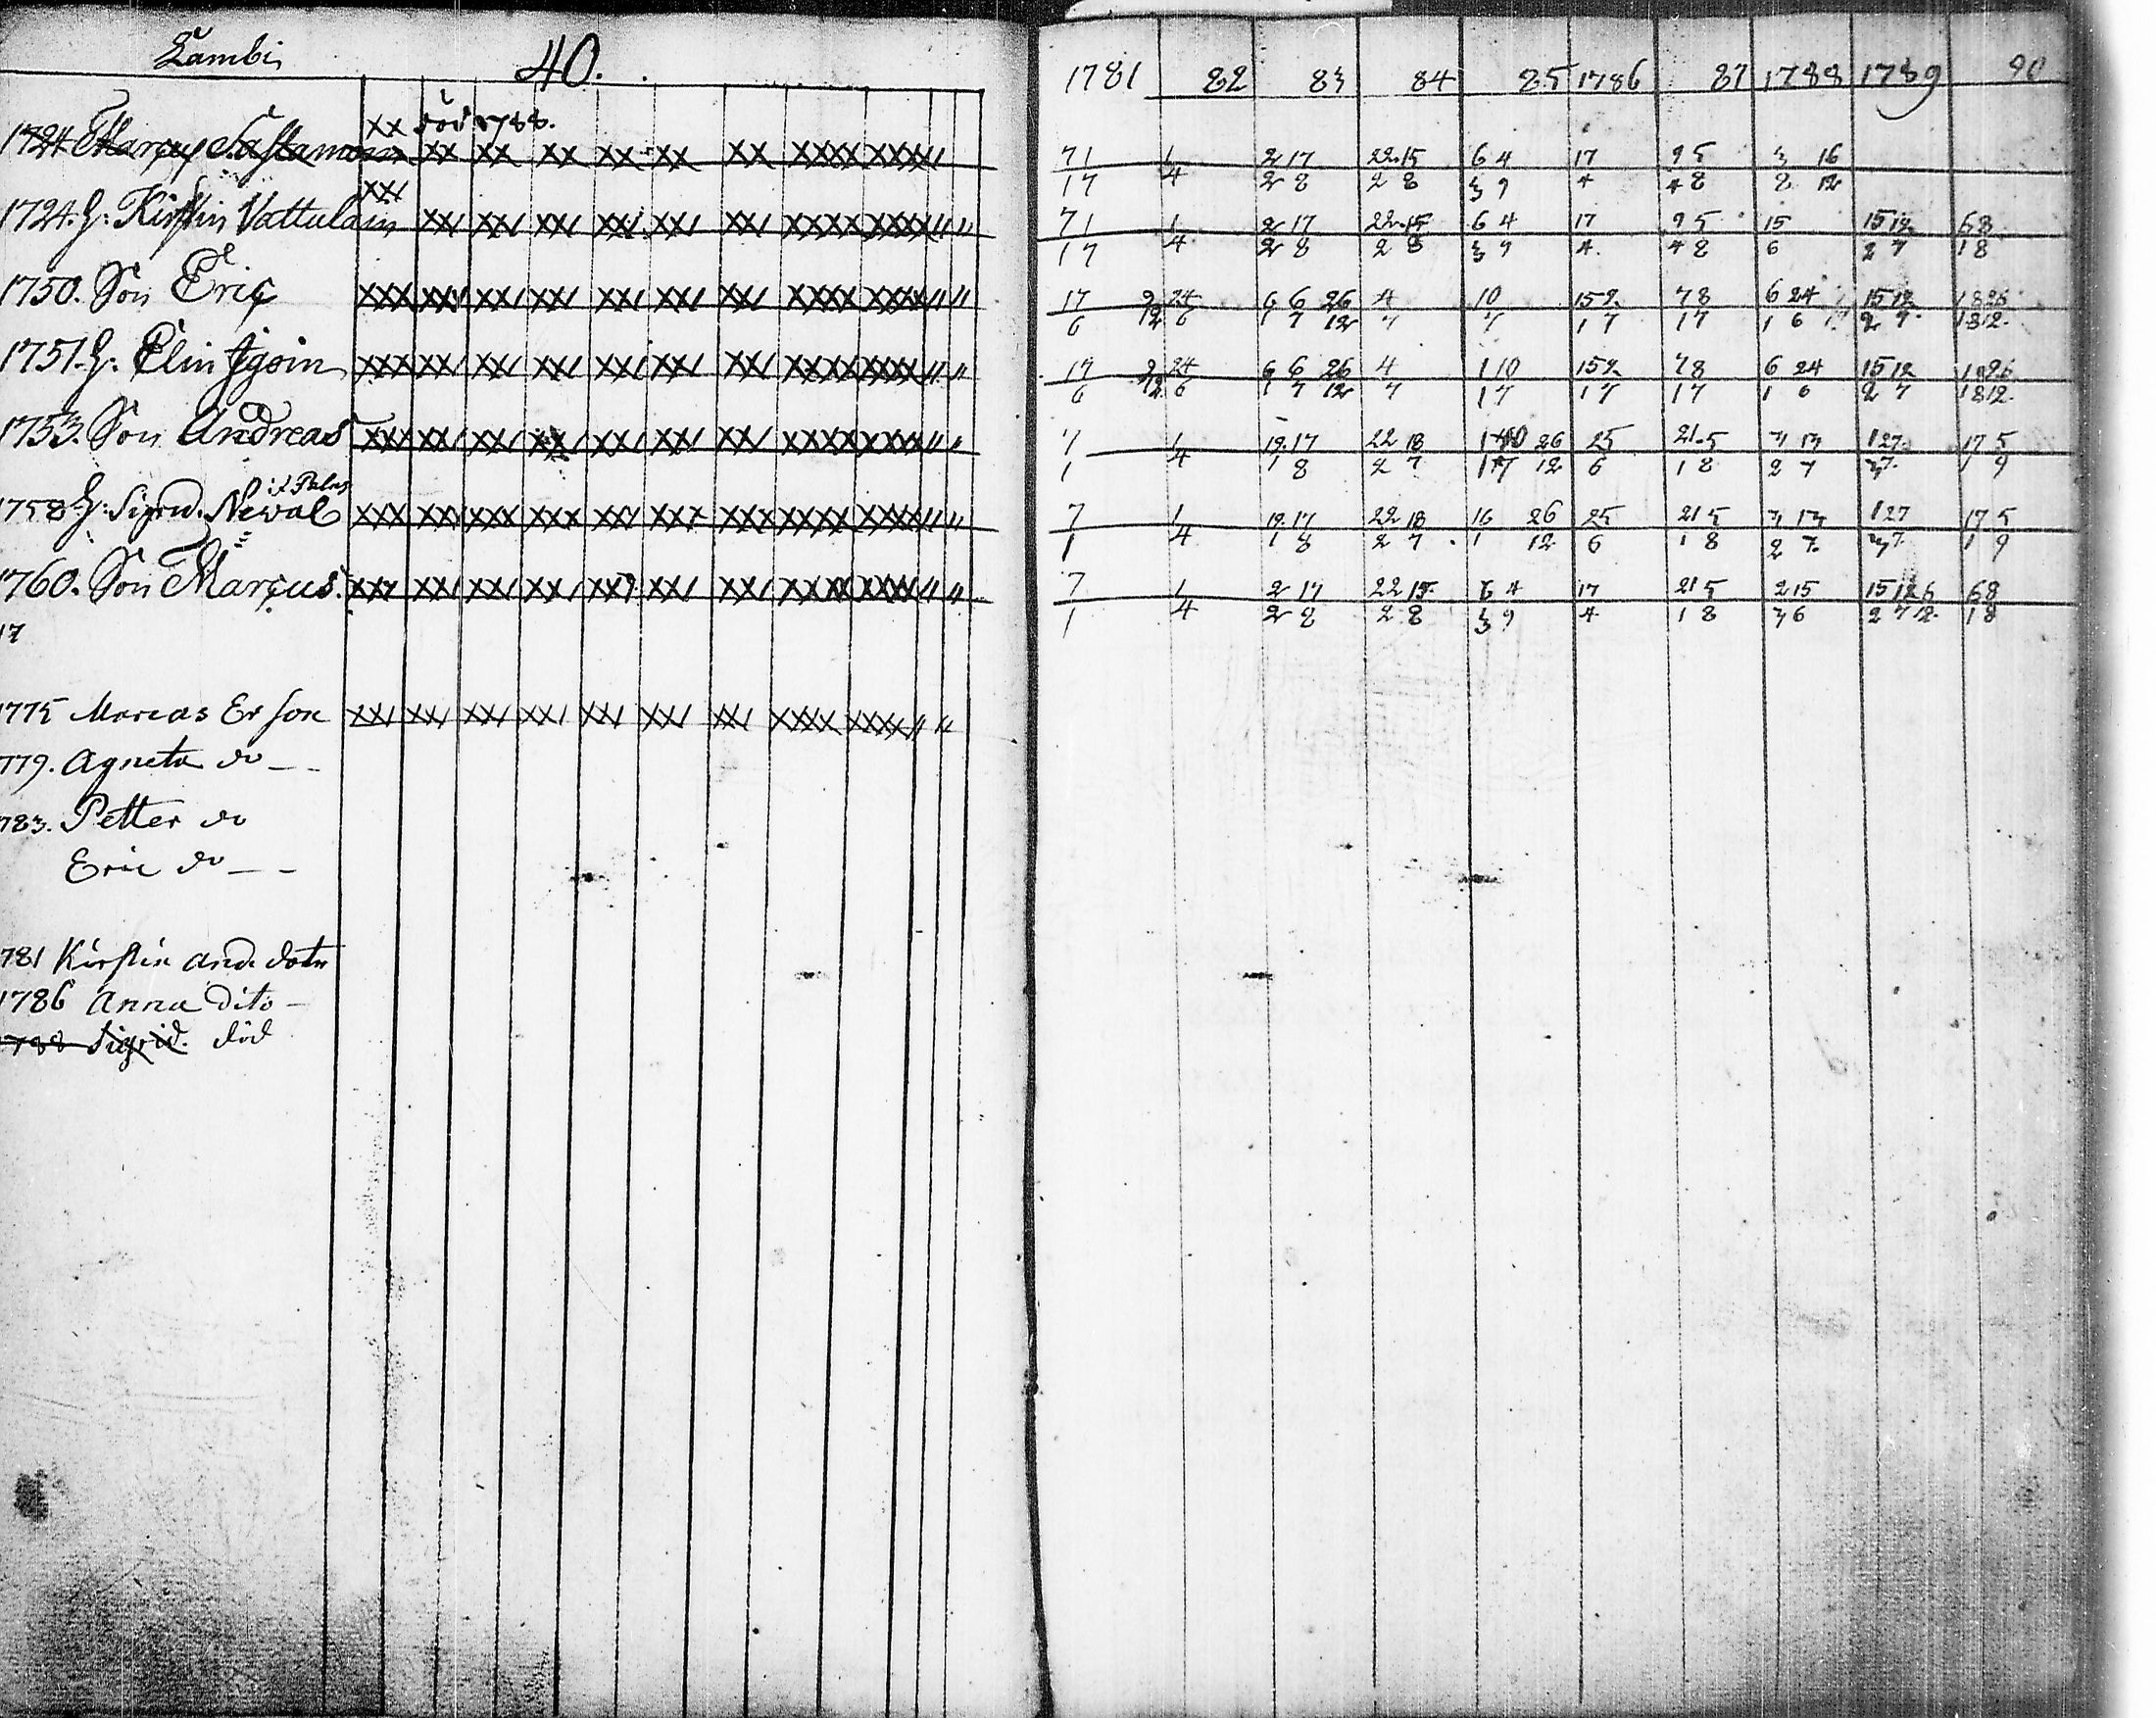 Lambi 40.
xx död 1788.
1724 Marcus Sastamoin xx xx xx xx xx xx xxxx xxxx " "
xx/
1724. H: Kirstin Vattulain xx/ xx/ xx/ xx/ xx/ xx/ xxxx xxxx " "
1750. Son Eric xxx xx/ xx/ xx/ xx/ xx/ xx/ xxxx xxxx " "
1751. H: Elin xxx xx/ xx/ xx/ xx/ xx/ xx/ xxxx xxxx " "
1753. Son Andreas xxx xx/ xx/ xx xx/ xx/ xx/ xxxx xxxx " "
1758 H: Sigrid. Neval xxx xx/ xxx xxx xx/ xxx xxx xxxx xxxx " "
1760. Son Marcus. xx/ xx/ xx/ xx/ xx/ xx/ xx/ xxxx xxxx " "
17
1775 Marcus Er son xx/ xx/ xx/ xx/ xx/ xx/ xx/ xxxx xxxx " "
779. Agneta do --
783. Petter do
Eric do --
781 Kirstin And. dotr
1786 Anna Dito -
1788 Sigrid. död
1781 82 83 84 85 1786 87 1788 1789 90
71 1 2 17 22 15 6 4 17 9 5 3 16
17 4 2 8 2 8 3 9 4 4 8 8 12
71 1 2 17 22 15 6 4 17 9 5 15 15 12 6 8
17 4 2 8 2 8 3 9 4. 4 8 6 2 7 1 8
17 9 24 6 6 26 4 10 15 2 7 8 6 24 15 12 18 26
6 12 6 1 7 12 7 7 1 7 1 7 1 6 2 7 1 8 12.
17 9 24 6 6 26 4 1 10 15 2 7 8 6 24 15 12 18 26
6 12 6 1 7 12 7 1 7 1 7 1 7 1 6 2 7 1 8 12.
7 1 19. 17 22 18 26 25 21. 5 3 13 1 27 17 5
1 4 1 8 2 7 12 6 1 8 2 7 3 7. 1 9
7 1 19. 17 22 18 16 26 25 21 5 3 13 1 27 17 5
1 4 1 8 2 7 1 12 6 1 8 2 7. 3 7 1 9
7 1 2 17 22 15. 6 4 17 21 5 2 15 15 12 6 6 8
1 4 2 8 2 8 3 9 4 1 8 3 6 2 7 12. 1 8